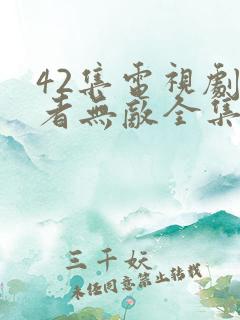 42集電視劇
者無敵全集
三千妖
未經同意禁止轉載